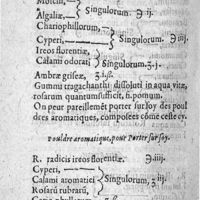 Moschi,
Algaliæ, Singulorum. ℈ ij.
Chariophillorum,
Cyperi, Singulorum. ℈ iij.
Ireos florentiæ,
Calami odorati, Singulorum. ʒ. j.
Ambræ griseæ, ʒ.
Gummi tragachanthi dissoluti in aqua vitæ,
rosarum quantum sufficit, fi. pomum.
On peut pareillemēt porter sur soy des poul
dres aromatiques, composées cōme ceste cy.
Pouldre aromatique, pour porter sur soy.
R. radicis ireos florentiæ. ℈ iiij.
Cyperi,
Calami aromatici Singulorum, ʒ iij.
Rosarū rubrarū,